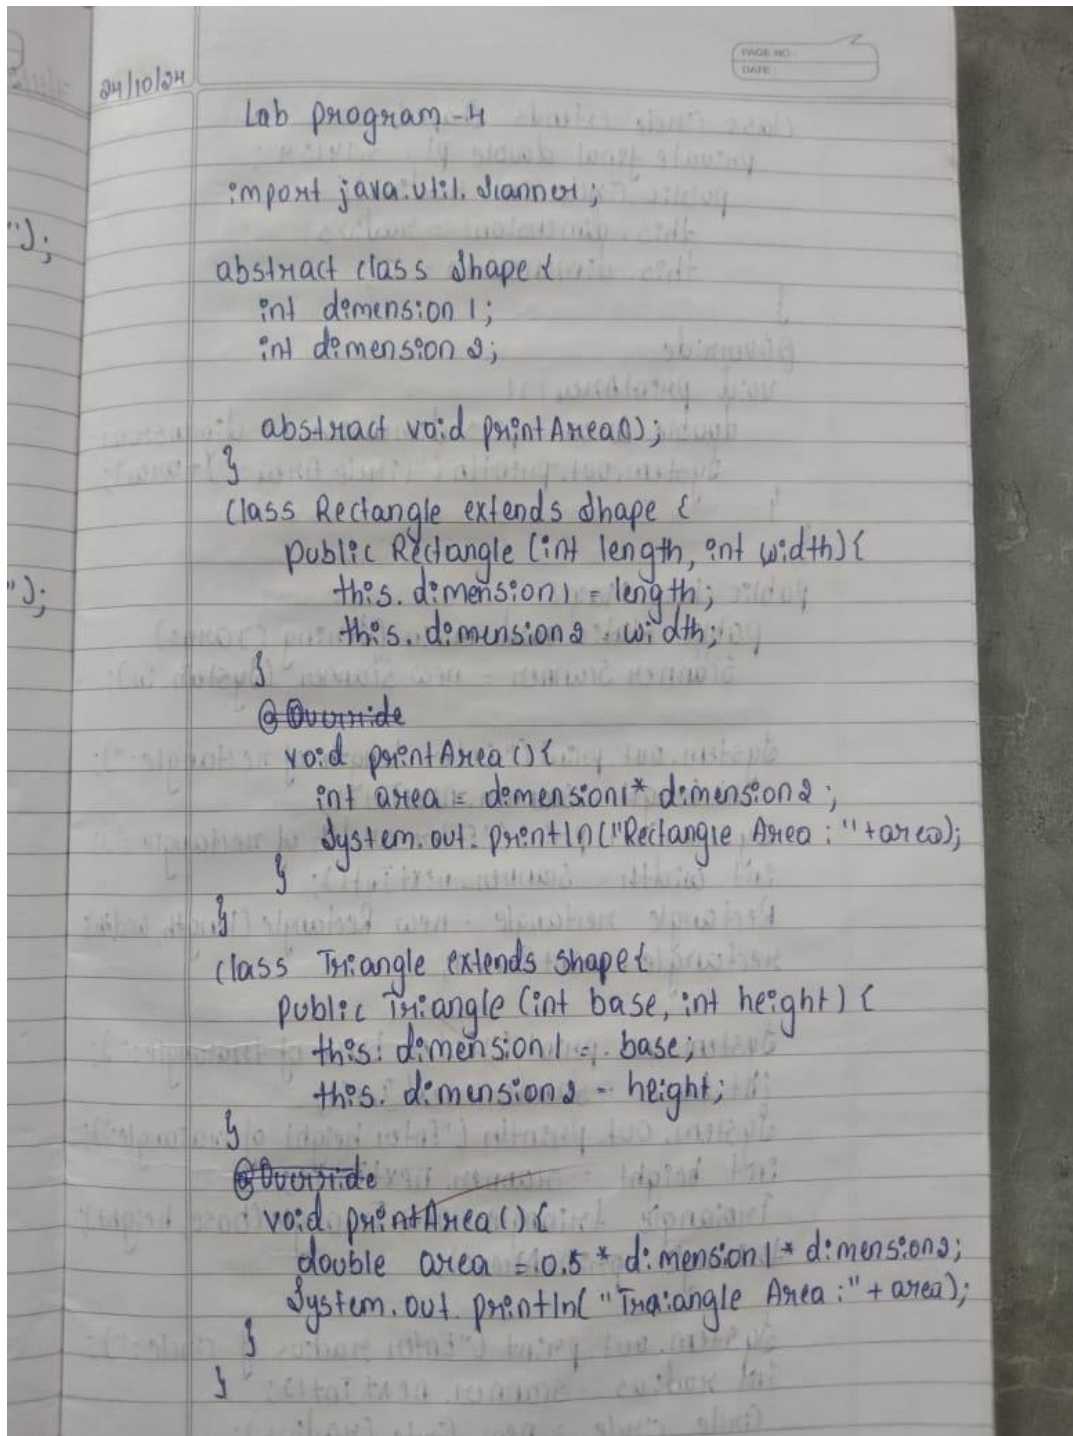 PAGE NO :
DATE :
24/10/24
Lab program-4
import java.util.Scanner;
abstract class Shape{
int dimension1;
int dimension2;
abstract void printArea();
}
class Rectangle extends Shape {
public Rectangle (int length, int width){
this.dimension1 = length;
this.dimension2 = width;
}
@Override
void printArea (){
int area = dimension1* dimension2;
System.out.println("Rectangle Area : "+area);
}
}
class Triangle extends Shape{
public Triangle (int base, int height) {
this.dimension1 = base;
this.dimension2 = height;
}
@Override
void printArea () {
double area = 0.5 * dimension1* dimension2;
System.out.println("Traiangle Area :" + area);
}
}
");
");